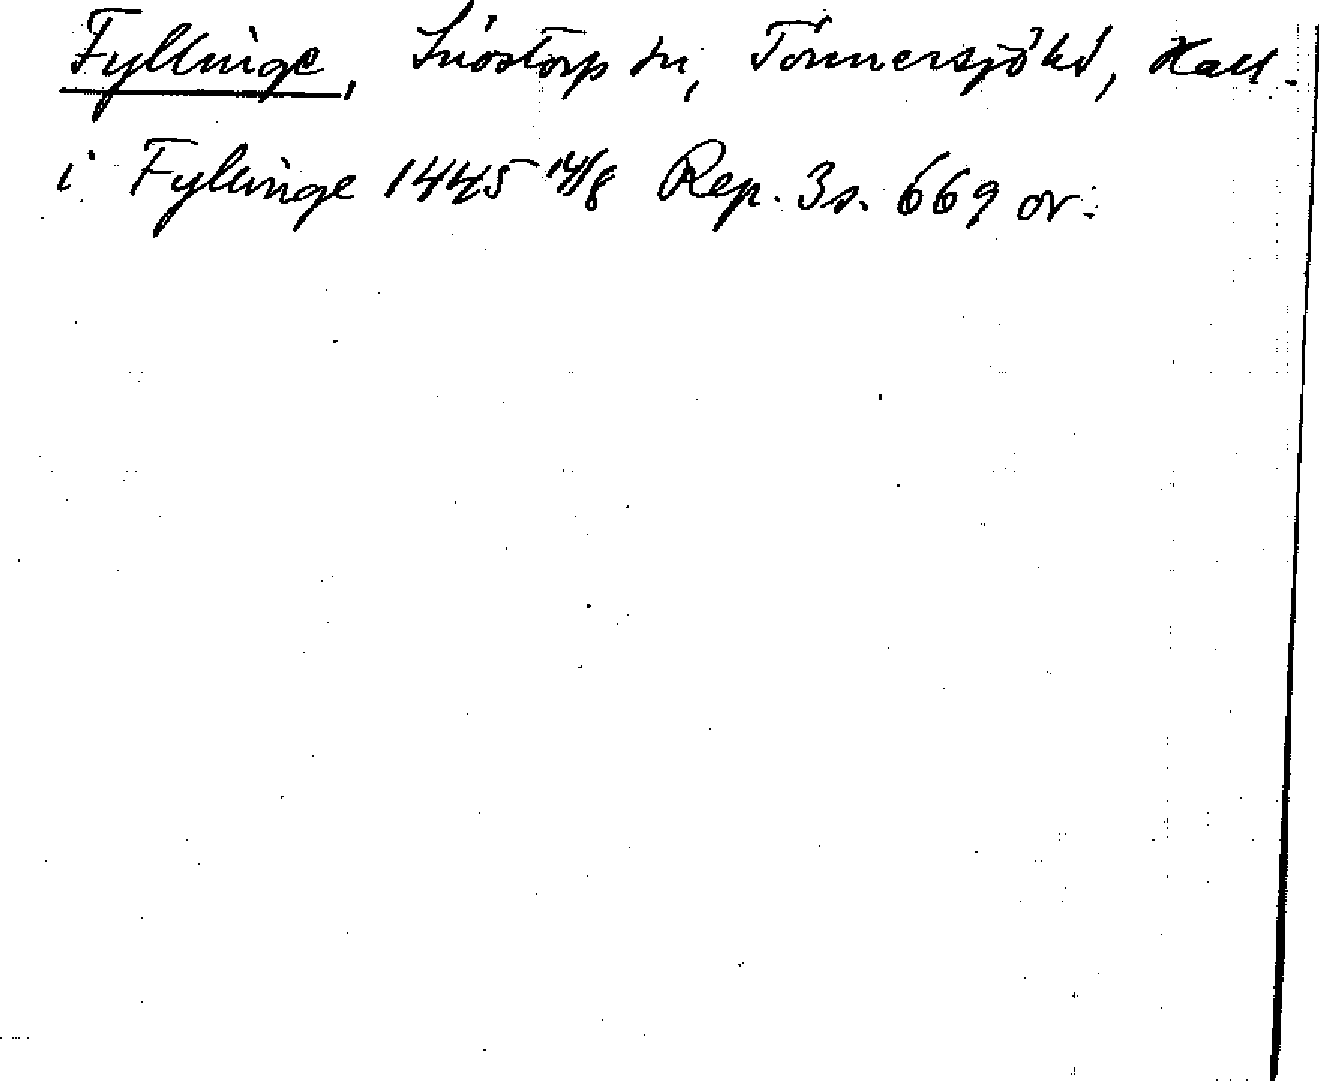 Fyllinge, Snöstorp sn, Tönnersjö hd, Hall.
i Fyllinge 1445 14/8 Rep. 3 s. 669 or.